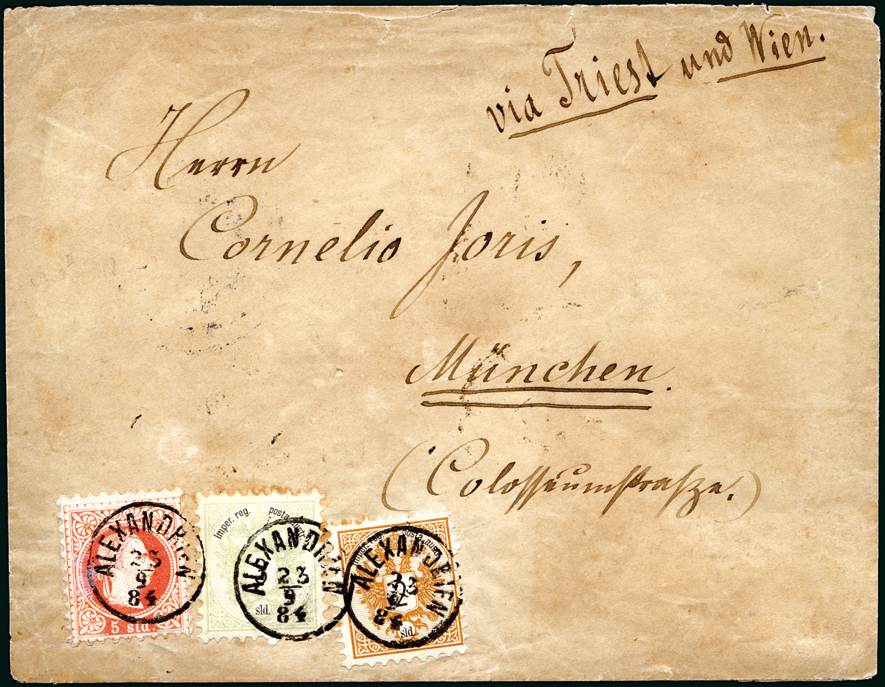 via Triest und Wien.
Herrn
Cornelio Joris,
München.
(Colosseumstraße.)
ALEXANDRIEN
23
9
84
5 sld.
Imper. reg. posta
ALEXANDRIEN
23
9
84
sld.
ALEXANDRIEN
23
84
2
sld